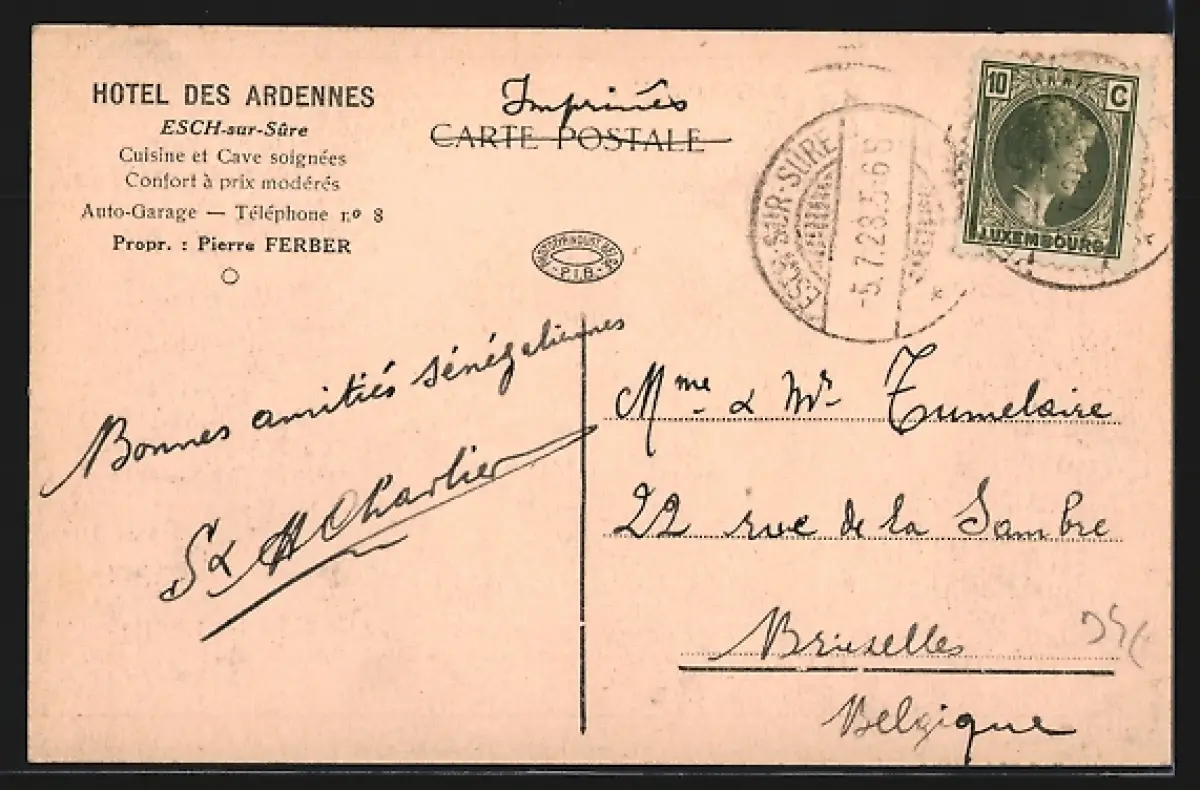 HOTEL DES ARDENNES
ESCH-sur-Sûre
Cuisine et Cave soignées
Confort à prix modérés
Auto-Garage — Téléphone nº 8
Propr. : Pierre FERBER
Imprimés
CARTE POSTALE
P.I.B.
ESCH-SUR-SÛRE
-5.7.28.5-6S
10 C
LUXEMBOURG
Bonnes amitiés sénégaliennes
S & H Charlier
Mme & Mr Tumelaire
22 rue de la Sambre
Bruxelles
Belgique